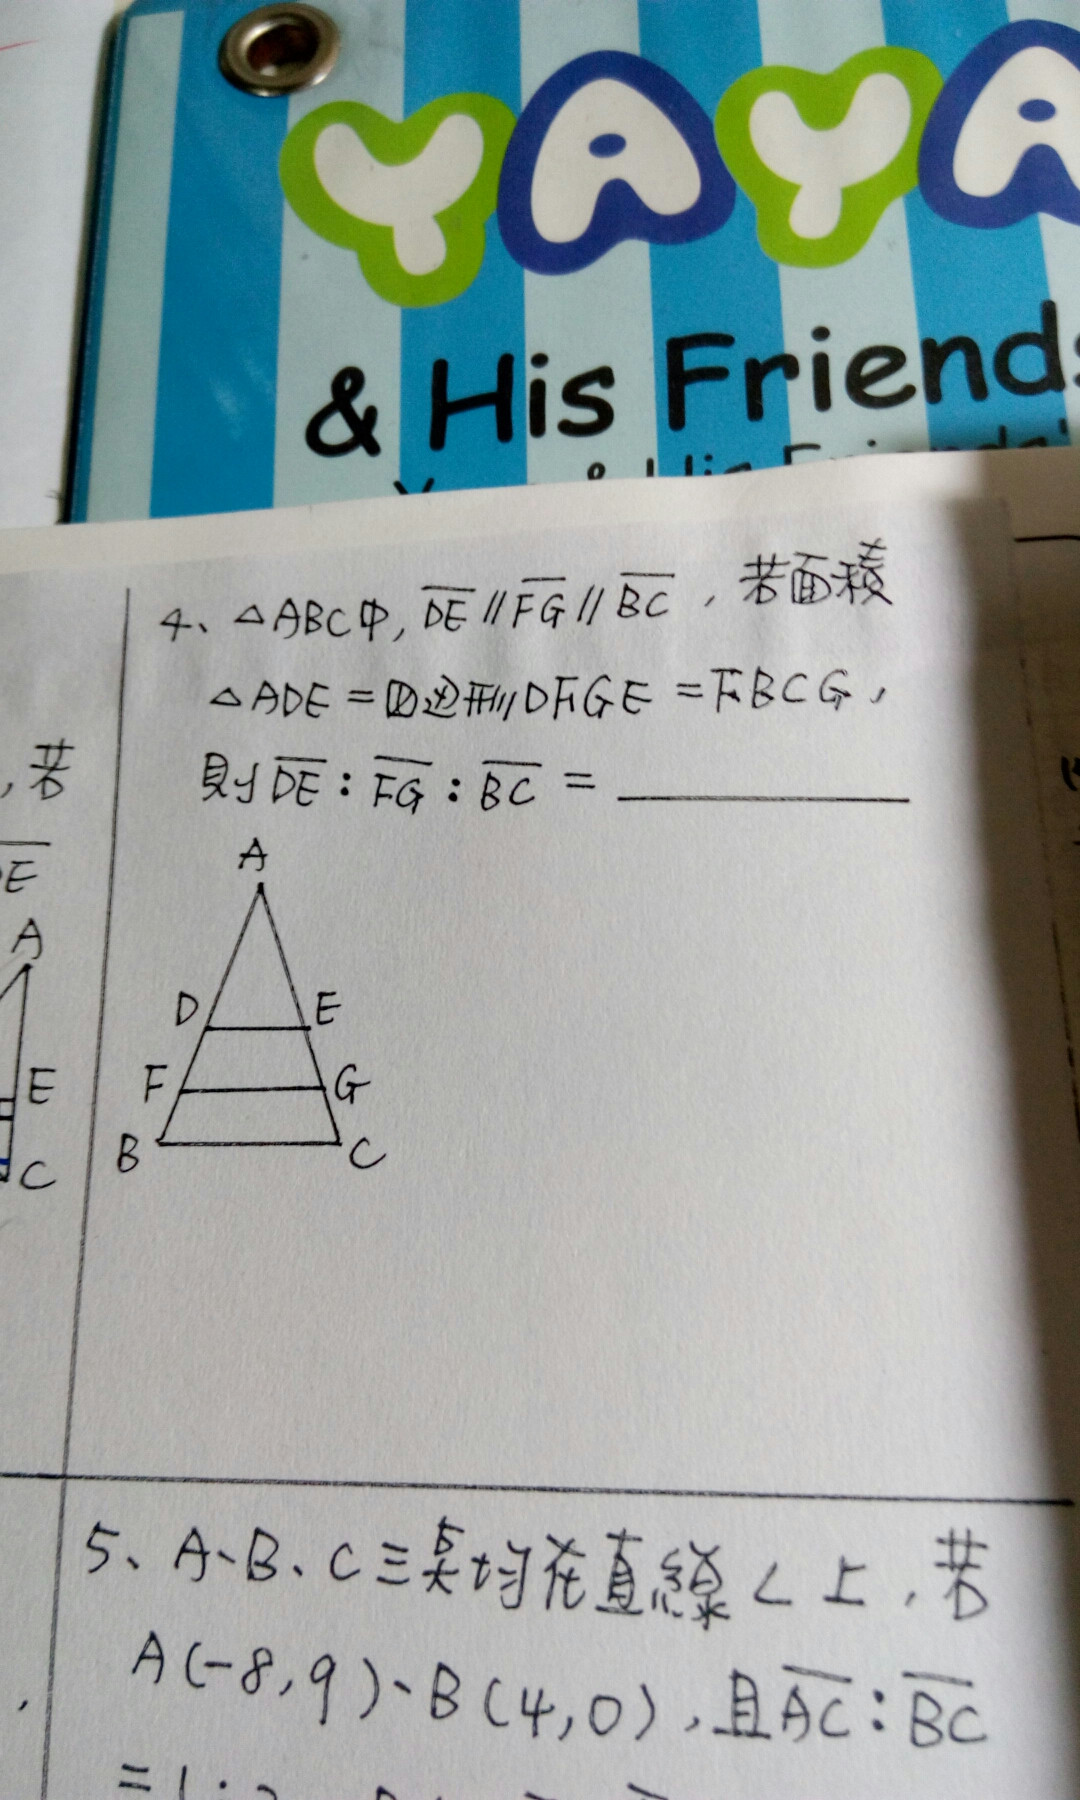 YAYA
& His Friends
4、△ABC中, DE // FG // BC , 若面積
△ADE = 四边形DFGE = FBCG ,
則 DE : FG : BC =
A
D E
F G
B C
, 若
DE
A
E
C
5、A、B、C三点均在直線 L 上 , 若
A(-8,9)、B(4,0) , 且 AC : BC